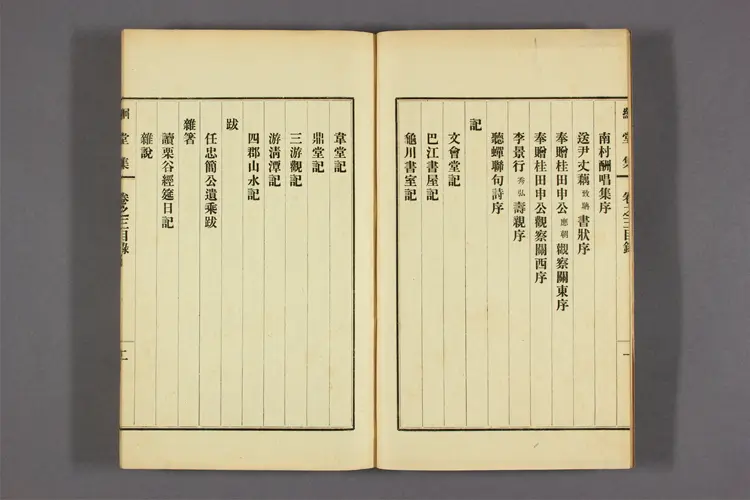 南村酬唱集序
送尹丈藕致聃書狀序
奉贈桂田申公應朝觀察關東序
奉贈桂田申公觀察關西序
李景行秀弘壽親序
聽蟬聯句詩序
記
文會堂記
巴江書屋記
龜川書室記
韋堂記
鼎堂記
三游觀記
游淸潭記
四郡山水記
跋
任忠簡公遺乘跋
雜箸
讀栗谷經筵日記
雜說
堂集 卷之三目錄 二